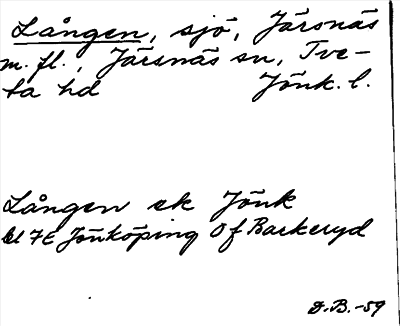 Lången, sjö, Järsnäs
m. fl., Järsnäs sn, Tve-
ta hd Jönk. l.
Lången ek Jönk
bl 7E Jönköping Of Barkeryd
D.B.-59